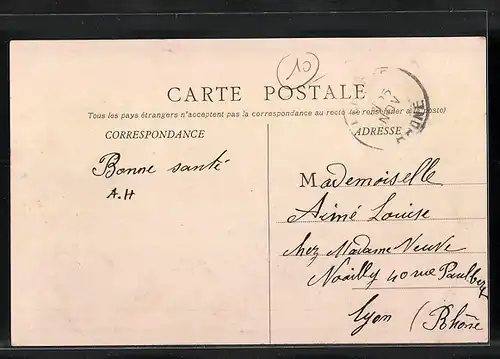 10
CARTE POSTALE
Tous les pays étrangers n'acceptent pas la correspondance au recto (se renseigner à la poste)
CORRESPONDANCE
ADRESSE
Bonne santé
A.H
Mademoiselle
Aimé Louise
chez Madame Veuve
Noailly 40 rue Paulbert
Lyon (Rhône